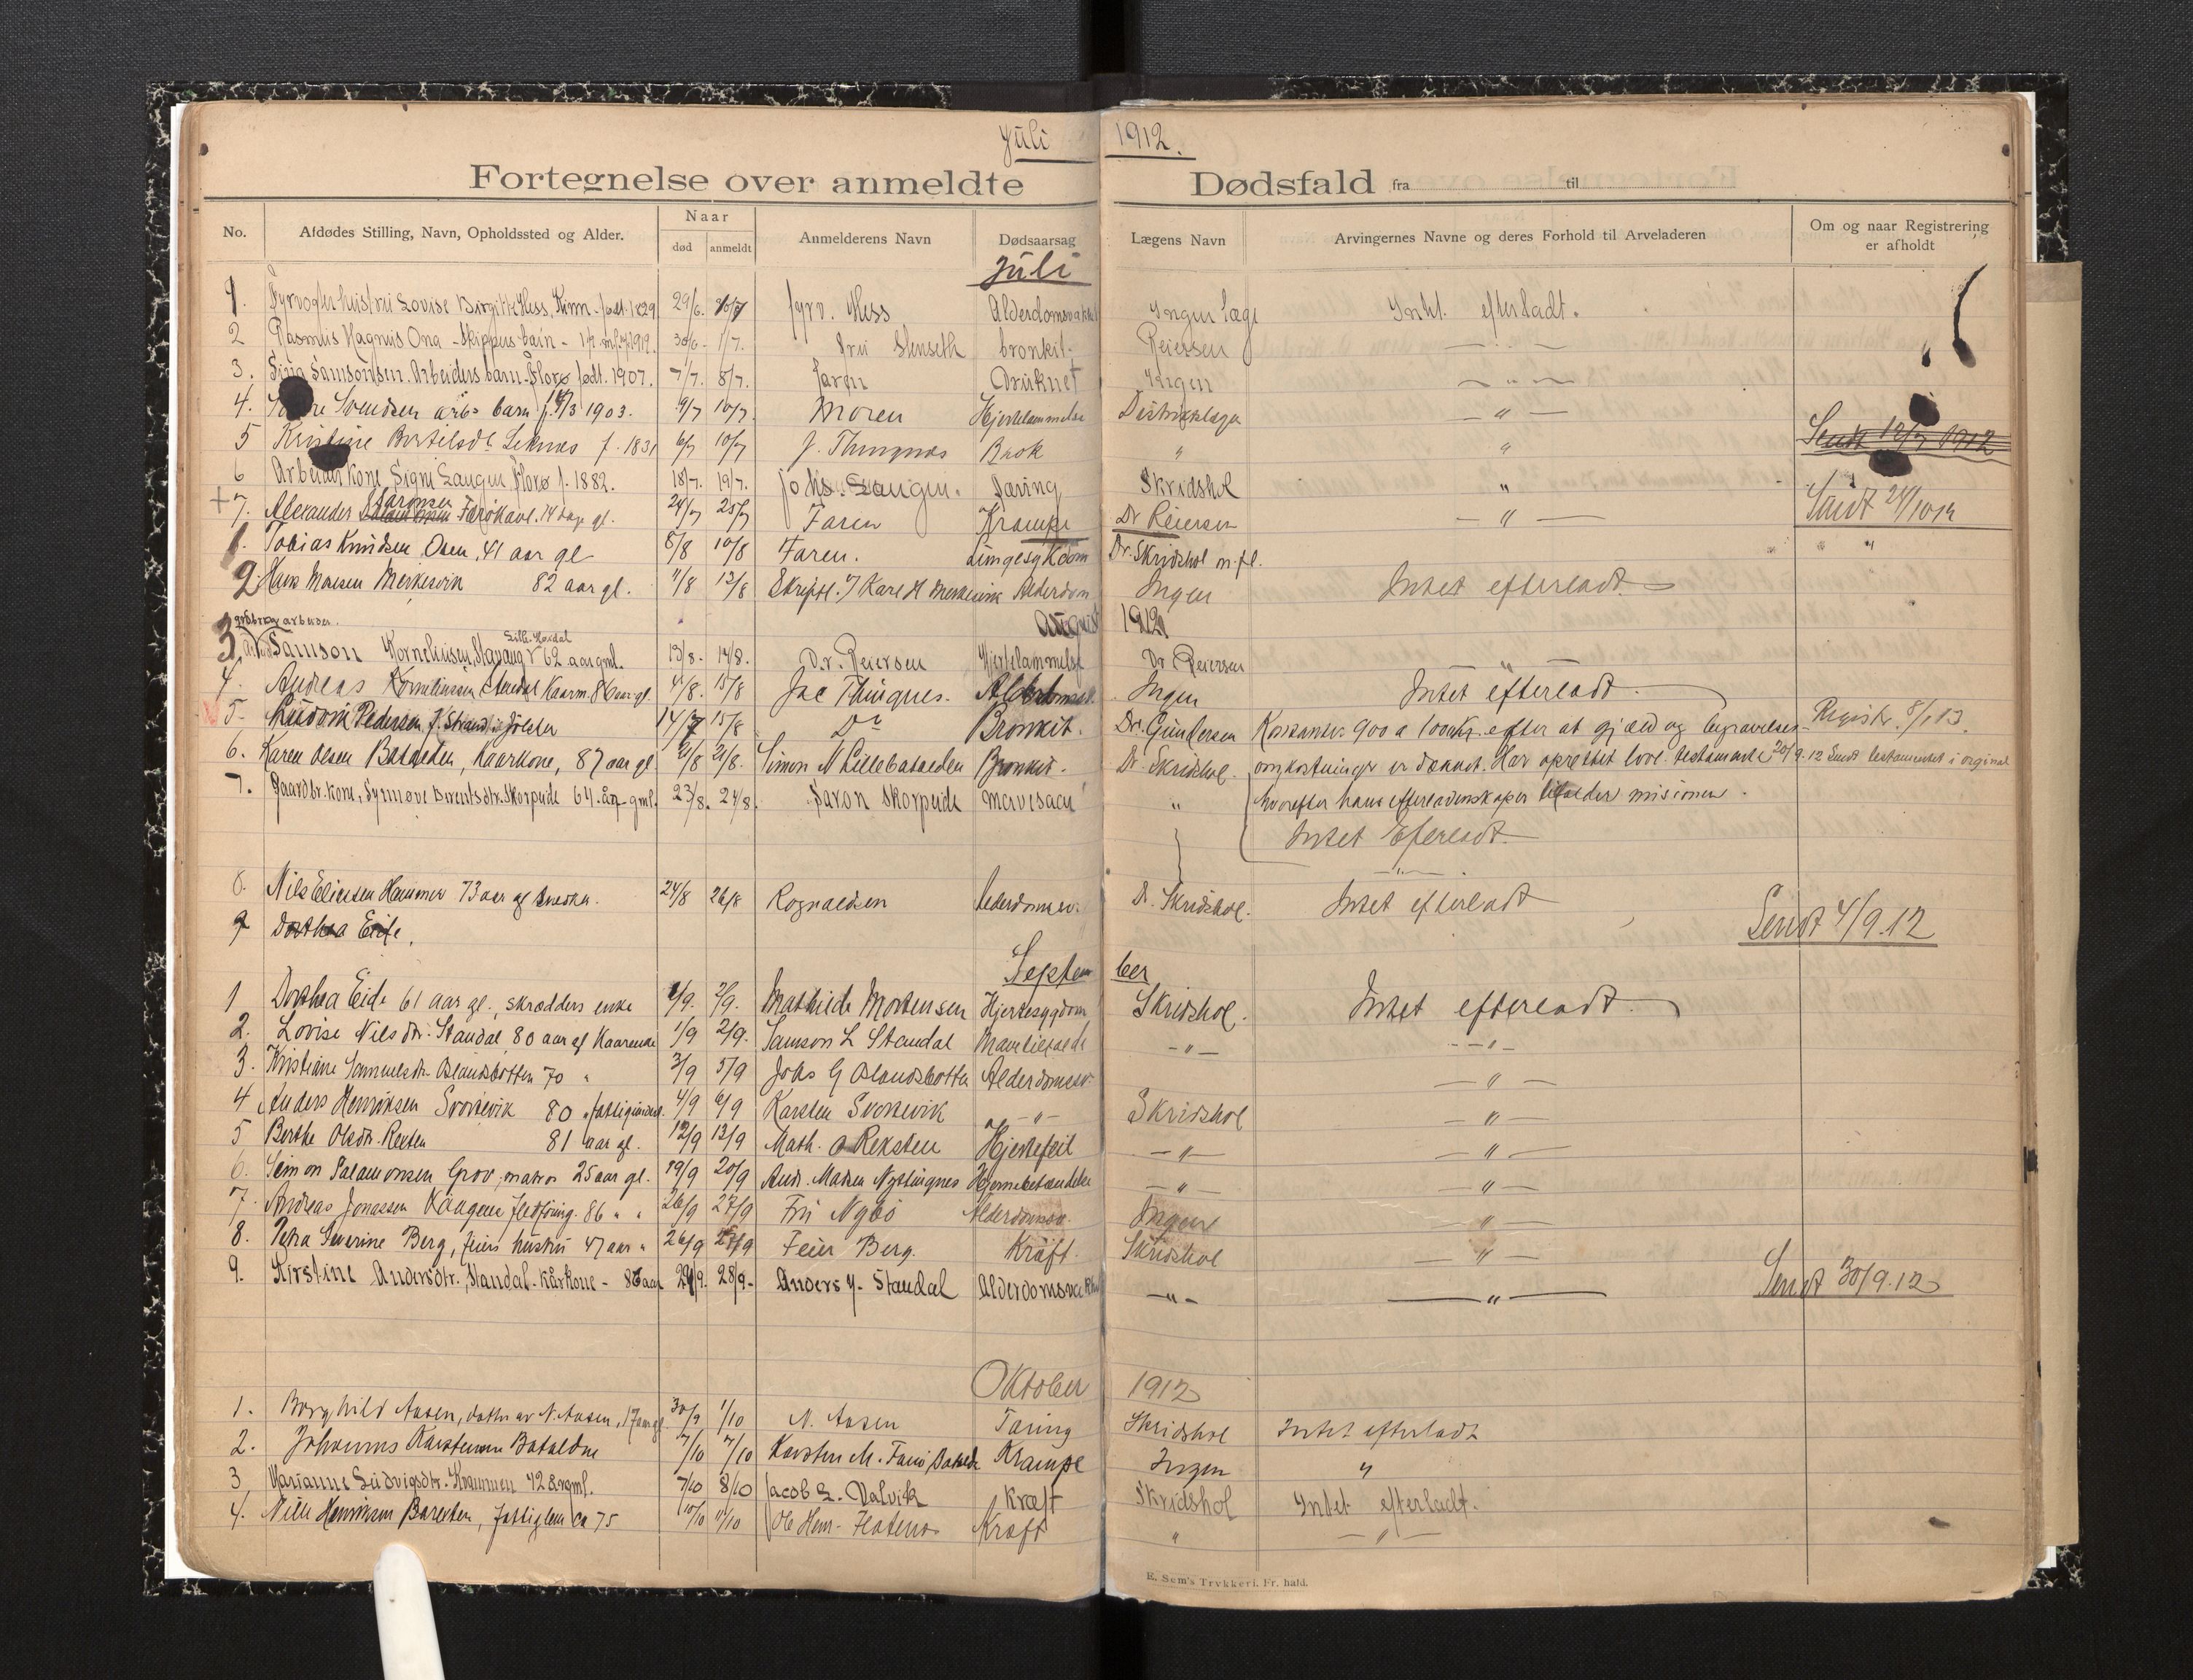 Juli 1912.
Fortegnelse over anmeldte Dødsfald fra til
No. Afdødes Stilling, Navn, Opholdssted og Alder. Naar død anmeldt Anmelderens Navn Dødsaarsag Lægens Navn Arvingernes Navne og deres Forhold til Arveladeren Om og naar Registrering er afholdt
Juli
1. Fyrvogterhustru Lovise Birgitte Hess, Kinn - født 1829 29/6. Fyrv. Hess Ingen læge Intet efterladt.
2 Rasmus Magnus Ona - Skippers barn - 30/6 - 1/7. Fru bronkit. Reiersen
3. Samsonsen. Arbeiders barn. Florø født 1907. 7/7. 8/7. Faren Druknet Ingen — " —
4. Svendsen arb. barn f. /3 1903. 9/7 10/7. Moren Hjertelammelse Distriktslægen — " —
5 Kristine Bertilsdt. Seknes f. 1831 6/7 10/7 J. Thingnes Brok " " Sendt 12/7 1912
6 Arbeider kone Signe Laugen Florø f. 1882. 18/7. 19/7. Johs. Laugen. Tæring Skridshol "
+ 7. Alexander Farøkavl. 14 dage gl. 24/7 25/7 Faren Krampe Dr Reiersen — " — Sendt 24/10 12
1. Tobias Knudsen Osen, 41 aar gl 8/8 10/8 Faren. Lungesykdom Dr. Skridshol m.fl. " "
2. Hans Monsen Merkesvik 82 aar gl. 7/8 12/8 Skriftl. v/ Karl H Merkesvik Alderdom Ingen Intet efterladt.
August 1912
3. arbeider. Samson Kornelinsen, Stavang 62 aar gml. 13/8. 14/8. Dr. Reiersen Hjertelammelse Dr Reiersen "
4. Andreas Kornelinssen Standal Kaarm. 86 aar gl. 4/8. 15/8 Jac Thingnes. Ingen Intet efterladt.
5. Ludvik Pedersen f. Strand i Jølster 14/7 15/8 Do Bronkit. Dr. Gundersen Kontanter 900 a 1000 Kr. efter at gjæld og begravelses- Registr. 8/1 13.
6. Karen Olsen Batalden, Kaarkone, 87 aar gl. 21/8. Simon N Lillebatalden Bronkit. Dr. Skridshol. omkostninger er dækket. Har oprettet lovl. testamente 20/9.12 Sendt testamentet i orginal
7. Gaardbr. kone, Synnøve Berentsdtr. Skorpeide 64 år gml. 23/8. 24/8. Faron Skorpeide Mavesaar " hvorefter hans efterladenskaper tilfalder misionen.
Intet Efterladt.
8. Nils Eliassen Hammer 73 aar gl 24/8 26/8 Rognaldsen Dr. Skridshol. Intet efterladt
9 Dorthea Eide. Sendt 4/9.12
September
1 Dorthea Eide 61 aar gl., skrædders enke 1/9. 2/9. Mathilde Mortensen Hjertesygdom Skridshol. Intet efterladt.
2. Lovise Nilsdtr. Standal 80 aar gl Kaarenke 1/9 2/9. Samson L Standal — " — — " —
3. Kristiane Samuelsdtr. Olandsbotten 70 " 3/9 5/9 Johs G Olandsbotten Alderdomssv. — " —
4 Anders Henriksen Svortevik 80 " 4/9 6/9 Karsten Svortevik — " — Skridshol — " —
5 Berthe Olsdtr. Reksten 81 aar gl. 12/9 13/9 Math. O Reksten Hjertefeil — " — — " —
6. Simon Salamonsen Grov, matros 25 aar gl. 19/9 20/9 And. Madsen Nyttingnes Hjernebetændelse — " — — " —
7. Andreas Jonassen Kaagene Fledføring. 86 " " 26/9 27/9 Fru Nybø Alderdomssv. Ingen — " —
8. Petra Severine Berg, feiers hustru 47 aar " 26/9 27/9 Feier Berg. Kræft. Skridshol — " —
9. Kirstine Andersdtr. Standal - Kårkone - 86 aar 28/9 - Anders J. Standal Alderdomssvækkelse — " — — " — Sendt 30/9.12
Oktober 1912
1. Borghild Aasen, datter av N. Aasen, 17 aar gl. 30/9 1/10 N. Aasen Tæring Skridshol Intet efterladt
2. Johannes Karstensen Batalden 7/10 7/10 Karsten M. Batalden Krampe Ingen "
3. Marianne Ludvigsdtr. Krammen 42 år gml. 7/10 8/10 Jacob L. Dalvik Kræft Skridshol Intet efterladt.
4. Nille Henriksen Barekten, Fattiglem ca 75 10/10 11/10 Ole Henr. Kræft " — " —
E. Sem's Trykkeri. Fr. hald.